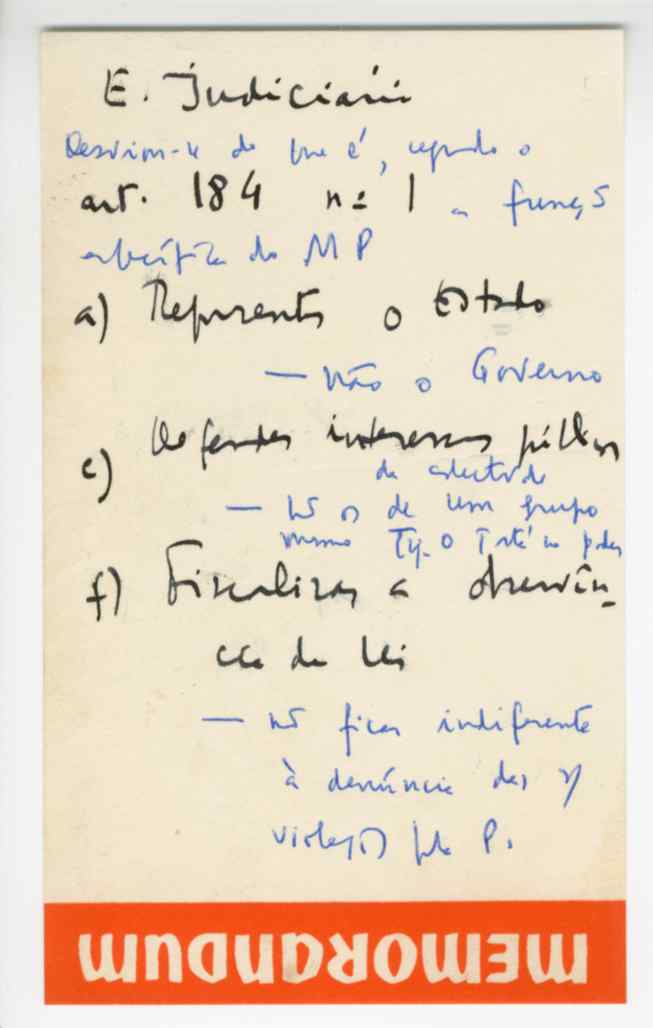 E. Judiciário
de que é, segundo o
art. 184 nº 1 a função
específica do MP
a) Representar o Estado
— não o Governo
c) Defender interesses públicos
da colectividade
— não os de um grupo
mesmo no poder
f) Fiscalizar a observân-
cia da lei
— não ficar indiferente
à denúncia das
violações pelo P.
MEMORANDUM